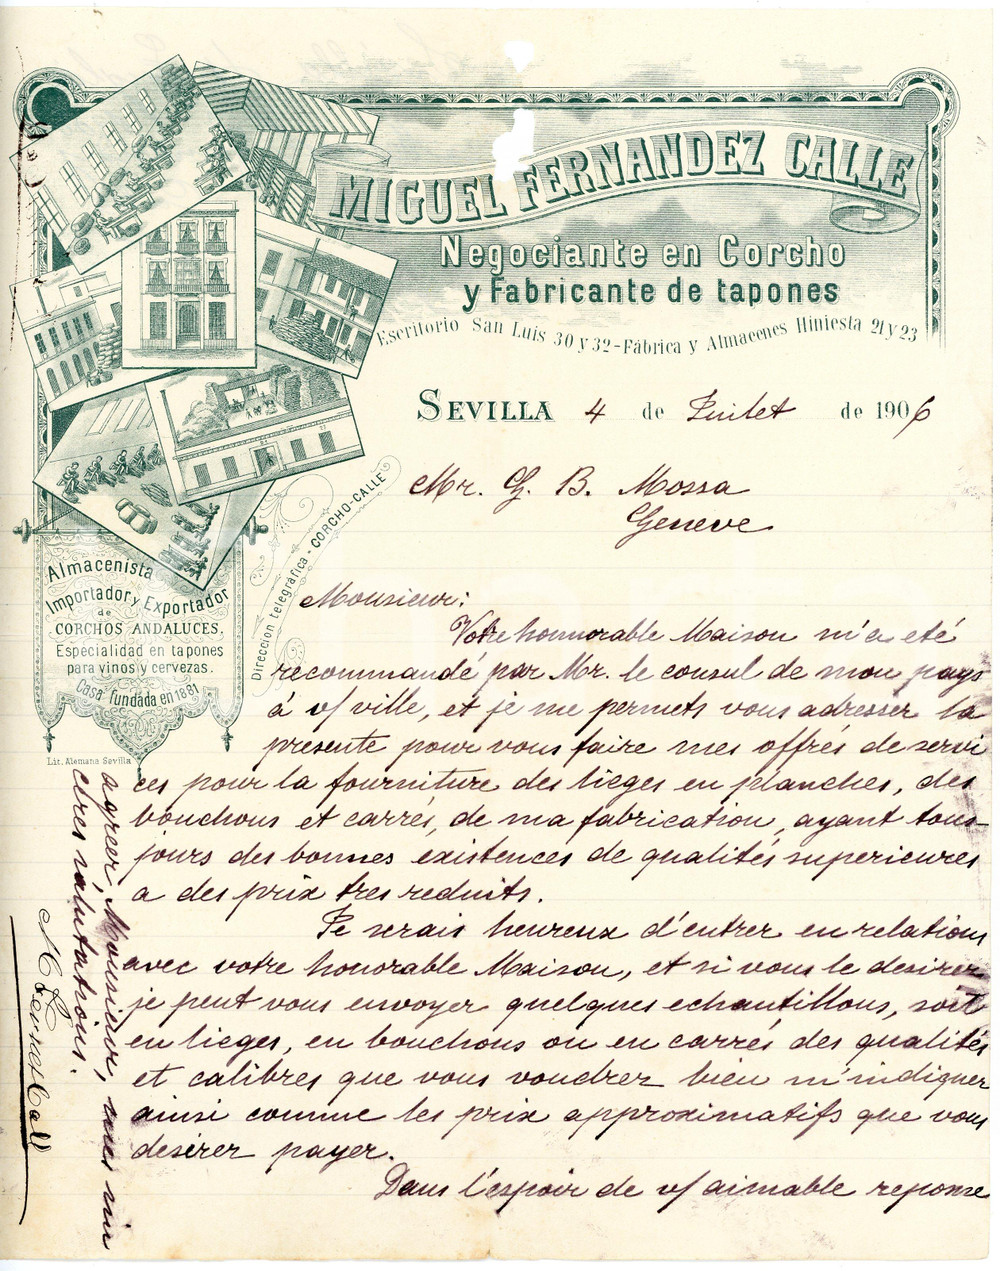 MIGUEL FERNANDEZ CALLE
Negociante en Corcho
y Fabricante de tapones
Escritorio San Luis 30 y 32 - Fábrica y Almacenes Hiniesta 21 y 23
SEVILLA 4 de Juillet de 1906
Mr. G. B. Mossa
Genève
Dirección telegráfica - CORCHO-CALLE
Almacenista
Importador y Exportador
de
CORCHOS ANDALUCES.
Especialidad en tapones
para vinos y cervezas.
Casa fundada en 1881
Lit. Alemana Sevilla
Monsieur:
Votre honnorable Maison m'a eté
recommandé par Mr. le consul de mon pays
á v/ ville, et je me permets vous adresser la
presente pour vous faire mes offrés de servi
ces pour la fourniture des lieges en planches, des
bouchons et carrés, de ma fabrication, ayant tou-
jours des bonnes existences de qualités superieures
a des prix tres reduits.
Je serais heureux d'entrer en relations
avec votre honorable Maison, et si vous le desirez
je peut vous envoyer quelques echantillons, soit
en lieges, en bouchons ou en carrés des qualités
et calibres que vous voudrez bien m'indiquer
ainsi comme les prix approximatifs que vous
desirez payer.
Dans l'espoir de v/ aimable reponse
agreer, Monsieur, mes sin
cères salutations.